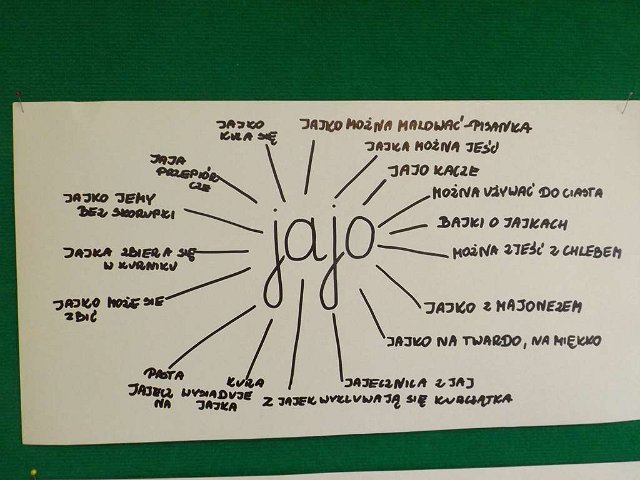 JAJKO
KULA SIĘ
JAJKO MOŻNA MALOWAĆ - PISANKA
JAJKA MOŻNA JEŚĆ
JAJO KACZE
MOŻNA UŻYWAĆ DO CIASTA
BAJKI O JAJKACH
MOŻNA ZJEŚĆ Z CHLEBEM
JAJKO Z MAJONEZEM
JAJKO NA TWARDO, NA MIĘKKO
JAJECZNICA Z JAJ
Z JAJEK WYKLUWAJĄ SIĘ KURCZĄTKA
KURA
WYSIADUJE
JAJKA
PASTA
JAJECZ
NA
JAJKO MOŻE SIE
ZBIĆ
JAJKA ZBIERA SIĘ
W KURNIKU
JAJKO JEMY
BEZ SKORUPKI
JAJA
PRZEPIÓR
CZE
jajo